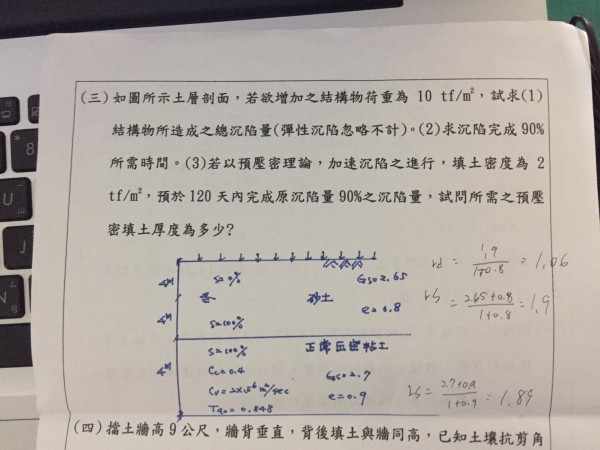 (三)如圖所示土層剖面，若欲增加之結構物荷重為 10 tf/m²，試求(1)
結構物所造成之總沉陷量(彈性沉陷忽略不計)。(2)求沉陷完成 90%
所需時間。(3)若以預壓密理論，加速沉陷之進行，填土密度為 2
tf/m²，預於 120 天內完成原沉陷量 90%之沉陷量，試問所需之預壓
密填土厚度為多少?
S=0%
Gs=2.65
砂土
e=0.8
S=100%
rd = 1.9/1+0.8 = 1.06
rs = 2.65+0.8/1+0.8 = 1.9
S=100%
正常壓密粘土
Cc=0.4
Gs=2.7
e=0.9
T90=0.848
rs = 2.7+0.9/1+0.9 = 1.89
(四)擋土牆高 9 公尺，牆背垂直，背後填土與牆同高，已知土壤抗剪角
8
U
J
N